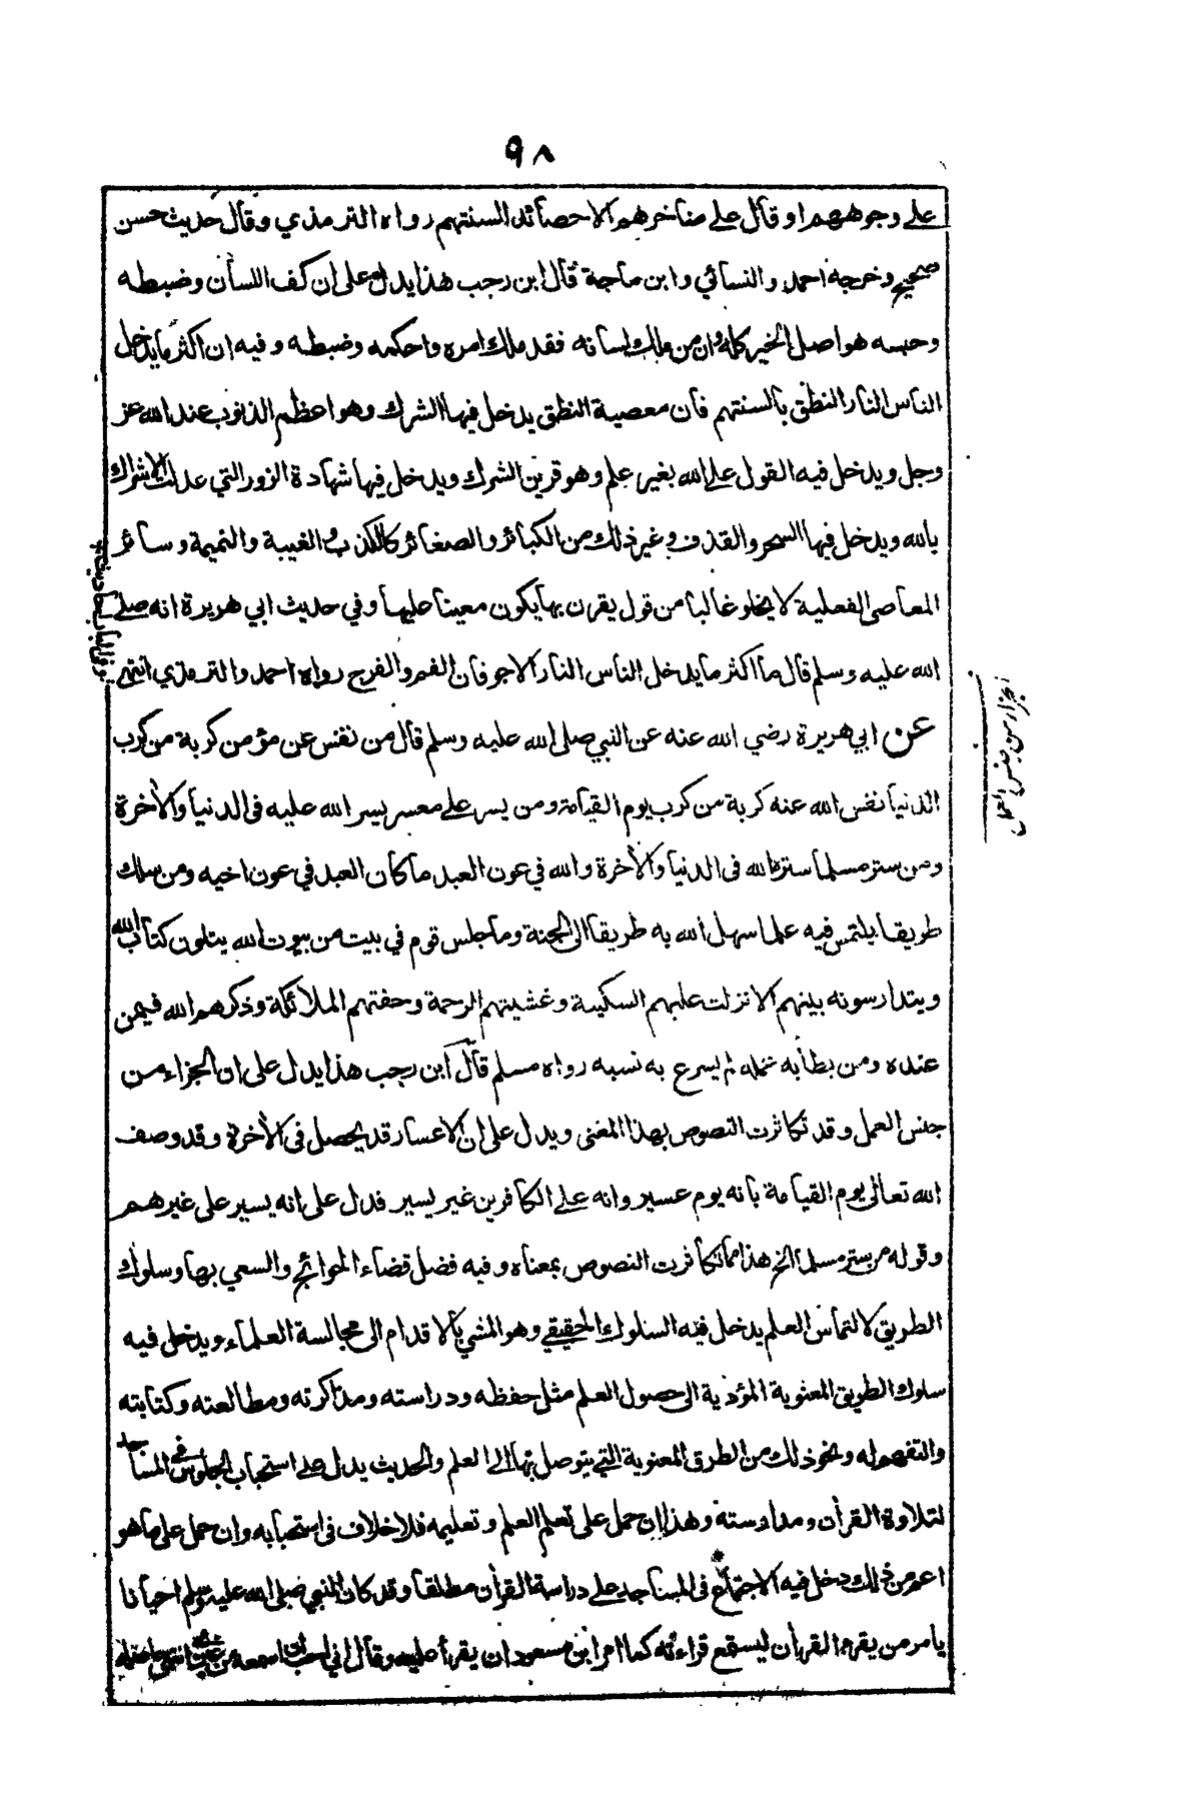 ٩٨
على وجوههم او قال على مناخرهم الا حصائد السنتهم رواه الترمذي وقال حديث حسن
صحيح وخرجه احمد والنسائي وابن ماجة قال ابن رجب هذا يدل على ان كف اللسان وضبطه
وحبسه هو اصل الخير كله وان من ملك لسانه فقد ملك امره واحكمه وضبطه وفيه ان اكثر ما يدخل
الناس النار النطق بالسنتهم فان معصية النطق يدخل فيها الشرك وهو اعظم الذنوب عند الله عز
وجل ويدخل فيه القول على الله بغير علم وهو قرين الشرك ويدخل فيها شهادة الزور التي عدلت الاشراك
بالله ويدخل فيها السحر والقذف وغير ذلك من الكبائر والصغائر كالكذب والغيبة والنميمة وسائر
المعاصي الفعلية لا يخلو غالبا من قول يقرن بها يكون معينا عليها وفي حديث ابي هريرة انه صلى
الله عليه وسلم قال ما اكثر ما يدخل الناس النار الاجوفان الفم والفرج رواه احمد والترمذي انتهى
وفي الباب احاديث
عن ابي هريرة رضي الله عنه عن النبي صلى الله عليه وسلم قال من نفس عن مؤمن كربة من كرب
الجزاء من جنس العمل
الدنيا نفس الله عنه كربة من كرب يوم القيامة ومن يسر على معسر يسر الله عليه فى الدنيا والأخرة
ومن ستر مسلما ستره الله فى الدنيا والأخرة والله في عون العبد ما كان العبد في عون اخيه ومن سلك
طريقا يلتمس فيه علما سهل الله به طريقا الى الجنة وما جلس قوم في بيت من بيوت الله يتلون كتاب الله
ويتدارسونه بينهم الا نزلت عليهم السكينة وغشيتهم الرحمة وحفتهم الملائكة وذكرهم الله فيمن
عنده ومن بطأ به عمله لم يسرع به نسبه رواه مسلم قال ابن رجب هذا يدل على ان الجزاء من
جنس العمل وقد تكاثرت النصوص بهذا المعنى ويدل على ان الاعسار قد يحصل فى الأخرة وقد وصف
الله تعالى يوم القيامة بانه يوم عسير وانه على الكافرين غير يسير فدل على انه يسير على غيرهم
وقوله من ستر مسلما الخ هذا مما تكاثرت النصوص بمعناه وفيه فضل قضاء الحوائج والسعي بها وسلوك
الطريق لالتماس العلم يدخل فيه السلوك الحقيقي وهو المشي بالاقدام الى مجالسة العلماء ويدخل فيه
سلوك الطريق المعنوية المؤدية الى حصول العلم مثل حفظه ودراسته ومذاكرته ومطالعته وكتابته
والتفهم له ونحو ذلك من الطرق المعنوية التي يتوصل بها الى العلم والحديث يدل على استحباب الجلوس في المساجد
لتلاوة القرأن ومدارسته وهذا ان حمل على تعلم العلم وتعليمه فلا خلاف فى استحبابه وان حمل على ما هو
اعم من ذلك دخل فيه الاجتماع فى المساجد على دراسة القرأن مطلقا وقد كان النبي صلى الله عليه وسلم احيانا
يامر من يقرء القرأن ليستمع قراءته كما امر ابن مسعود ان يقرأ عليه وقال اني احب ان اسمعه من غيري انتهى حاصله